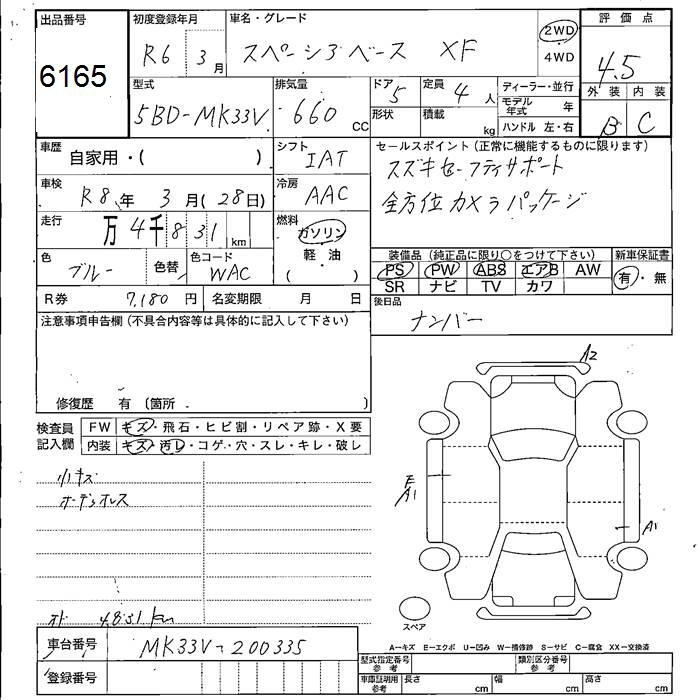 出品番号 初度登録年月 車名・グレード 評価点
6165 R6 3月 スペーシアベース XF 2WD 4WD 4.5
型式 排気量 ドア 定員 ディーラー・並行 外装 内装
5BD-MK33V 660 CC 5 4人 モデル年式 年 B C
形状 積載 kg ハンドル 左・右
車歴 自家用・( ) シフト IAT セールスポイント(正常に機能するものに限ります)
スズキセーフティサポート
車検 R8年 3月(28日) 冷房 AAC 全方位カメラパッケージ
走行 万4千831km 燃料 ガソリン 軽油 ( )
装備品(純正品に限り○をつけて下さい) 新車保証書
色 ブルー 色替 色コード WAC PS PW ABS エアB AW 有・無
SR ナビ TV カワ
R券 7,180円 名変期限 月 日 後日品
注意事項申告欄(不具合内容等は具体的に記入して下さい) ナンバー
A2
修復歴 有(箇所 )
検査員記入欄 FW キズ・飛石・ヒビ割・リペア跡・X要
内装 キズ・汚レ・コゲ・穴・スレ・キレ・破レ
小キズ E
オーディオレス A1 A1
オド 4831km スペア
車台番号 MK33V-200335 A-キズ E-エクボ U-凹み W-補修跡 S-サビ C-腐食 XX-交換済
型式指定番号 参考 類別区分番号 参考
登録番号 車庫証明用 参考 長さ cm 幅 cm 高さ cm